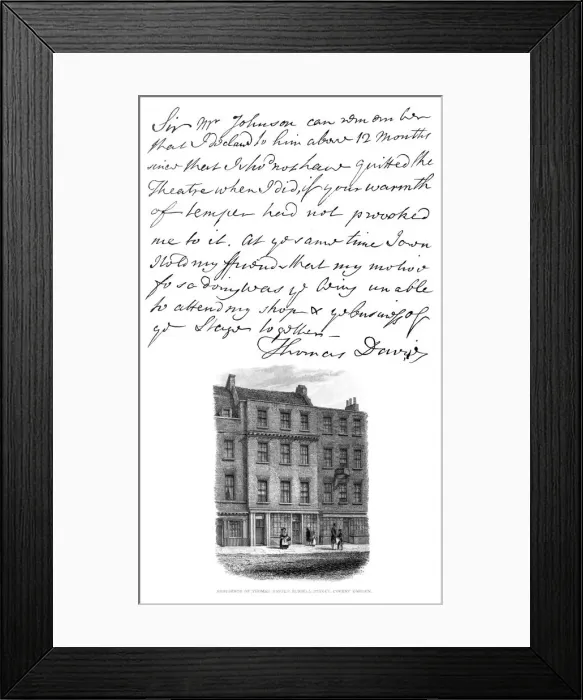 Sir Mr Johnson can remember
that I declard to him above 12 Months
since that I shod not have quitted the
Theatre when I did, if your warmth
of temper had not provoked
me to it. At ye same time I own
I told my friends that my motive
for so doing was ye being unable
to attend my shop & ye business of
ye Stage together
Thomas Davies
RESIDENCE OF THOMAS DAVIES, RUSSELL STREET, COVENT GARDEN.